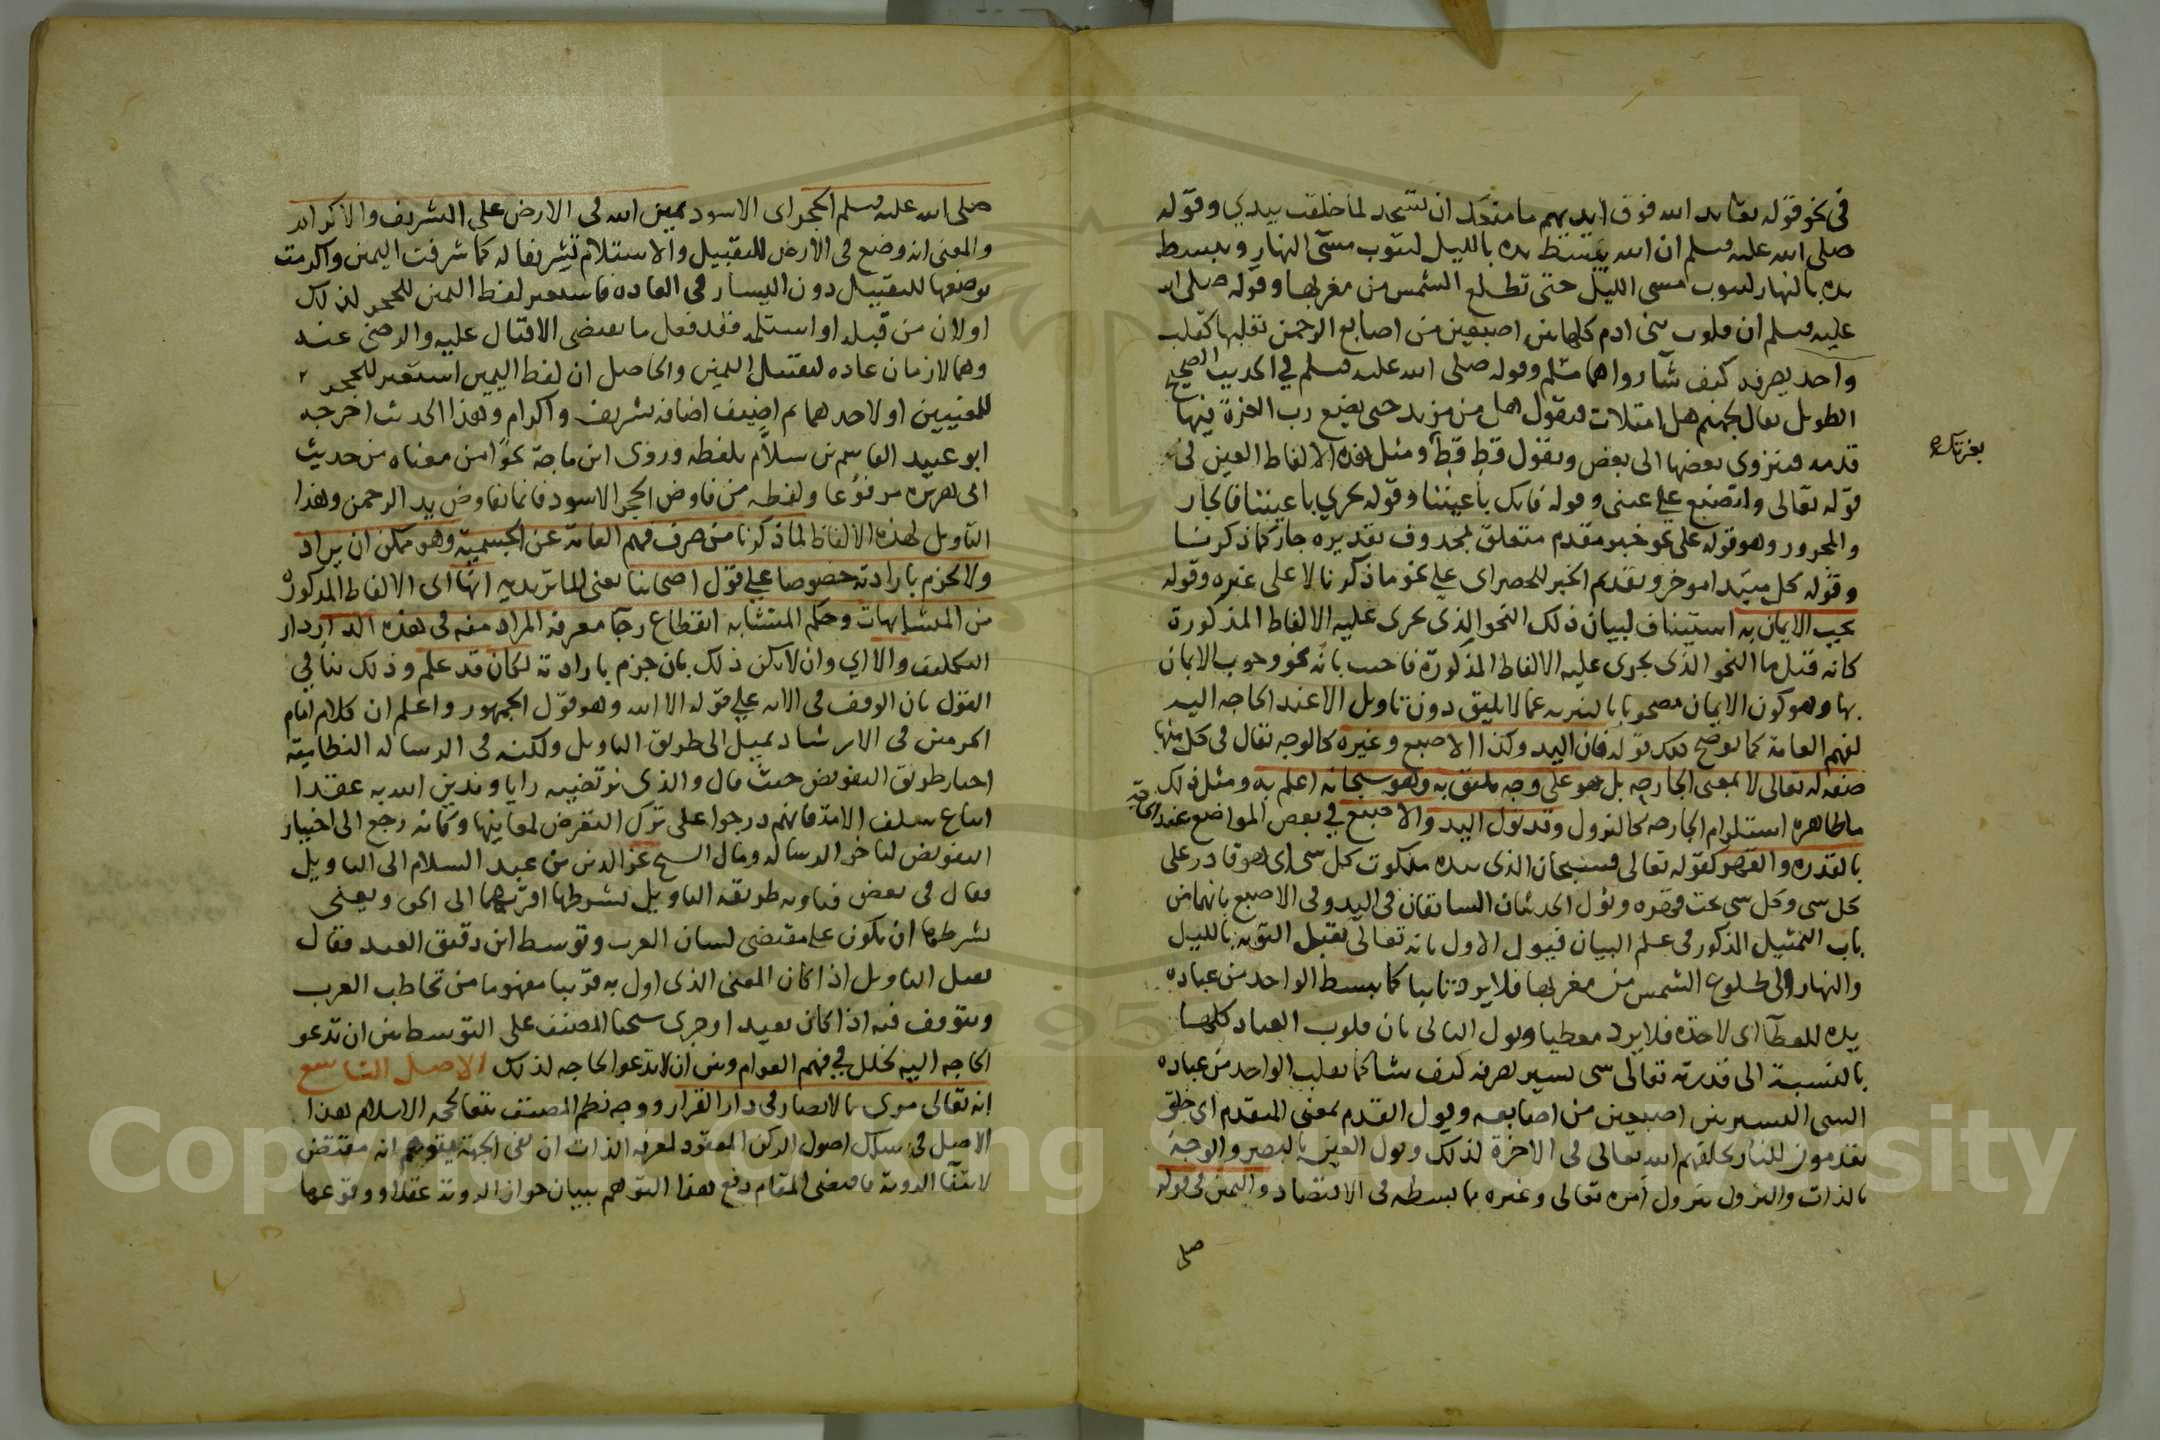 في نحو قوله تعالى يد الله فوق ايديهم ما منعك ان تسجد لما خلقت بيدي وقوله
صلى الله عليه وسلم ان الله يبسط يده بالليل ليتوب مسئ النهار ويبسط
يده بالنهار ليتوب مسي الليل حتى تطلع الشمس من مغربها وقوله صلى الله
عليه وسلم ان قلوب بني ادم كلها بين اصبعين من اصابع الرحمن تقلبها كقلب
واحد يصرفه كيف شآ رواهما مسلم وقوله صلى الله عليه وسلم في الحديث الصحيح
الطويل يقال لجهنم هل امتلات فتقول هل من مزيد حتى يضع رب العزة فيها
قدمه فينزوي بعضها الى بعض وتقول قط قط ومثل هذه الالفاظ العين في
بعزتك
قوله تعالى ولتصنع على عيني وقوله فانك بأعيننا وقوله تجري بأعيننا فالجار
والمجرور وهو قوله على نحو خبر مقدم متعلق بمحذوف تقديره جار كما ذكرنا
وقوله كل مبتدا موخر وتقديم الخبر للحصر اي على نحو ما ذكرنا لا على غيره وقوله
يجب الايمان به استيناف لبيان ذلك النحو الذي يجري عليه الالفاظ المذكورة
كانه قيل ما النحو الذي يجري عليه الالفاظ المذكورة فاجيب بانه نحو وجوب الايمان
بها وهو كون الايمان مصحوبا بالتنزيه عما لا يليق دون تاويل الا عند الحاجه اليه
لفهم العامة كما يوضح ذلك قوله فان اليد وكذا الاصبع وغيره كالوجه تقال في كل منها
صفه له تعالى لا بمعنى الجارحه بل هو على وجه يليق به وهو سبحانه اعلم به ومثل ذلك
ما ظاهره استلزام الجارحه كالنزول وقد تؤل اليد والاصبع في بعض المواضع عند الحاجة
بالقدره والقهر كقوله تعالى فسبحان الذي بيده ملكوت كل شي اي هو قادر على
كل شي وكل شي تحت قهره وتؤل الحديثان السابقان في اليد وفي الاصبع بانهما من
باب التمثيل المذكور في علم البيان فيؤل الاول بانه تعالى يقبل التوبه بالليل
والنهار الى طلوع الشمس من مغربها فلا يرد تايبا كما يبسط الواحد من عباده
يده للعطآ اي لاخذه فلا يرد معطيا ويؤل الثاني بان قلوب العباد كلها
بالنسبة الى قدرته تعالى شي يسير يصرفه كيف شا كما يقلب الواحد من عباده
الشي اليسير بين اصبعين من اصابعه ويؤل القدم بمعنى المتقدم اي خلق
يقدمون للنار يخلقهم الله تعالى في الاخرة لذلك وتؤل العين بالبصر والوجه
بالذات والنزول بنزول أمره تعالى وغيره مما بسطه في الاقتصاد واليمين في قوله
صلى
صلى الله عليه وسلم الحجر اي الاسود يمين الله في الارض على التشريف والاكرام
والمعنى انه وضع في الارض للتقبيل والاستلام تشريفا له كما شرفت اليمين واكرمت
بوضعها للتقبيل دون اليسار في العاده فاستعير لفظ اليمين للحجر لذلك
اولان من قبله او استلمه فقد فعل ما يقتضي الاقبال عليه والرضى عنه
وهما لازمان عاده لتقبيل اليمين والحاصل ان لفظ اليمين استعير للحجر
للمعنيين او لاحدهما ثم اضيف اضافه تشريف واكرام وهذا الحديث اخرجه
ابو عبيد القاسم بن سلام بلفظه وروى ابن ماجة نحوا من معناه من حديث
ابي هريره مرفوعا ولفظه من فاوض الحجر الاسود فانما يفاوض يد الرحمن وهذا
التاويل لهذه الالفاظ لما ذكرنا من صرف فهم العامة عن الجسمية وهو ممكن ان يراد
ولا يجزم بارادته خصوصا على قول اصحابنا يعني الماتريديه انها اي الالفاظ المذكوره
من المتشابهات وحكم المتشابه انقطاع رجآ معرفة المراد منه في هذه الدار دار
التكليف والا اي وان لا يكن ذلك بان جزم بارادته لكان قد علم وذلك ينافي
القول بان الوقف في الايه على قوله الا الله وهو قول الجمهور واعلم ان كلام امام
الحرمين في الارشاد يميل الى طريق التاويل ولكنه في الرسالة النظامية
اختار طريق التفويض حيث قال والذي نرتضيه رايا وندين الله به عقدا
اتباع سلف الامة فانهم درجوا على ترك التعرض لمعانيها وكانه رجع الى اختيار
التفويض لتاخر الرساله ومال الشيخ عز الدين بن عبد السلام الى التاويل
فقال في بعض فتاويه طريقة التاويل بشرطها اقربهما الى الحق ويعني
بشرطها ان يكون على مقتضى لسان العرب وتوسط ابن دقيق العيد فقال
نقبل التاويل اذا كان المعنى الذي اول به قريبا مفهوما من تخاطب العرب
ونتوقف فيه اذا كان بعيدا وجرى شيخنا المصنف على التوسط بين ان تدعو
الحاجه اليه لخلل في فهم العوام وبين ان لا تدعو الحاجه لذلك الاصل التاسع
انه تعالى مرئ بالابصار في دار القرار ووجه نظم المصنف تبعا لحجة الاسلام هذا
الاصل في سلك اصول الركن المعقود لمعرفة الذات ان نفي الجهة يتوهم انه مقتض
لانتفآ الرؤية فاقتضى المقام دفع هذا التوهم ببيان جواز الرؤية عقلا ووقوعها